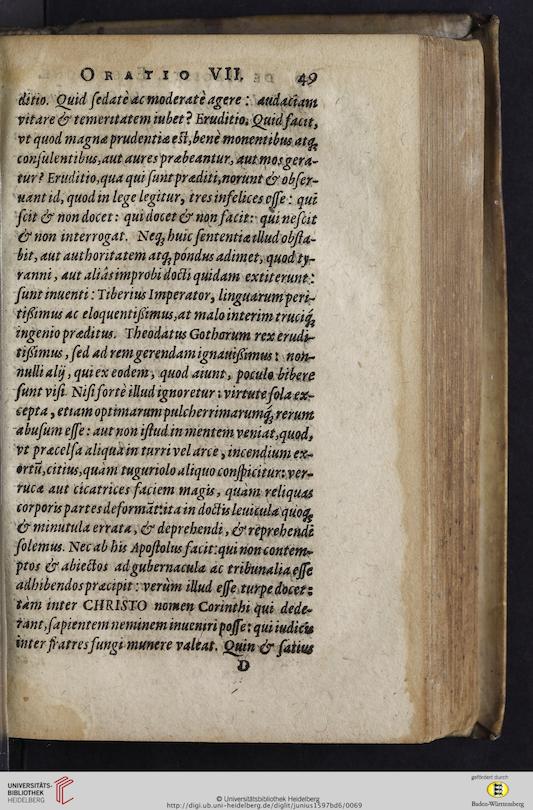 ORATIO VII. 49
ditio. Quid ſedatè ac moderatè agere: audaciam
vitare & temeritatem iubet? Eruditio. Quid facit,
vt quod magnæ prudentiæ eſt, benè monentibus atq;
conſulentibus, aut aures præbeantur, aut mos gera-
tur? Eruditio, qua qui ſunt præditi, norunt & obſer-
uant id, quod in lege legitur, tres infelices eſſe: qui
ſcit & non docet: qui docet & non facit: qui neſcit
& non interrogat. Neq; huic ſententiæ illud obſta-
bit, aut authoritatem atq; pondus adimet, quod ty-
ranni, aut aliâs improbi docti quidam extiterunt:
ſunt inuenti: Tiberius Imperator, linguarum peri-
tißimus ac eloquentißimus, at malo interim truciq;
ingenio præditus. Theodatus Gothorum rex erudi-
tißimus, ſed ad rem gerendam ignauißimus: non-
nulli alij, qui ex eodem, quod aiunt, poculo bibere
ſunt viſi. Niſi fortè illud ignoretur: virtute ſola ex-
cepta, etiam optimarum pulcherrimarumq; rerum
abuſum eſſe: aut non iſtud in mentem veniat, quod,
vt præcelſa aliqua in turri vel arce, incendium ex-
ortũ, citius, quàm tuguriolo aliquo conſpicitur: ver-
rucæ aut cicatrices faciem magis, quàm reliquas
corporis partes deformãt: ita in doctis leuicula quoq;
& minutula errata, & deprehendi, & reprehendi
ſolemus. Nec ab his Apoſtolus facit: qui non contem-
ptos & abiectos ad gubernacula ac tribunalia eſſe
adhibendos præcipit: verùm illud eſſe turpe docet:
tam inter CHRISTO nomen Corinthi qui dede-
rant, ſapientem neminem inueniri poſſe: qui iudicis
inter fratres fungi munere valeat. Quin & ſatius
D
UNIVERSITÄTS-
BIBLIOTHEK
HEIDELBERG
© Universitätsbibliothek Heidelberg
http://digi.ub.uni-heidelberg.de/diglit/junius1597bd6/0069
gefördert durch
Baden-Württemberg